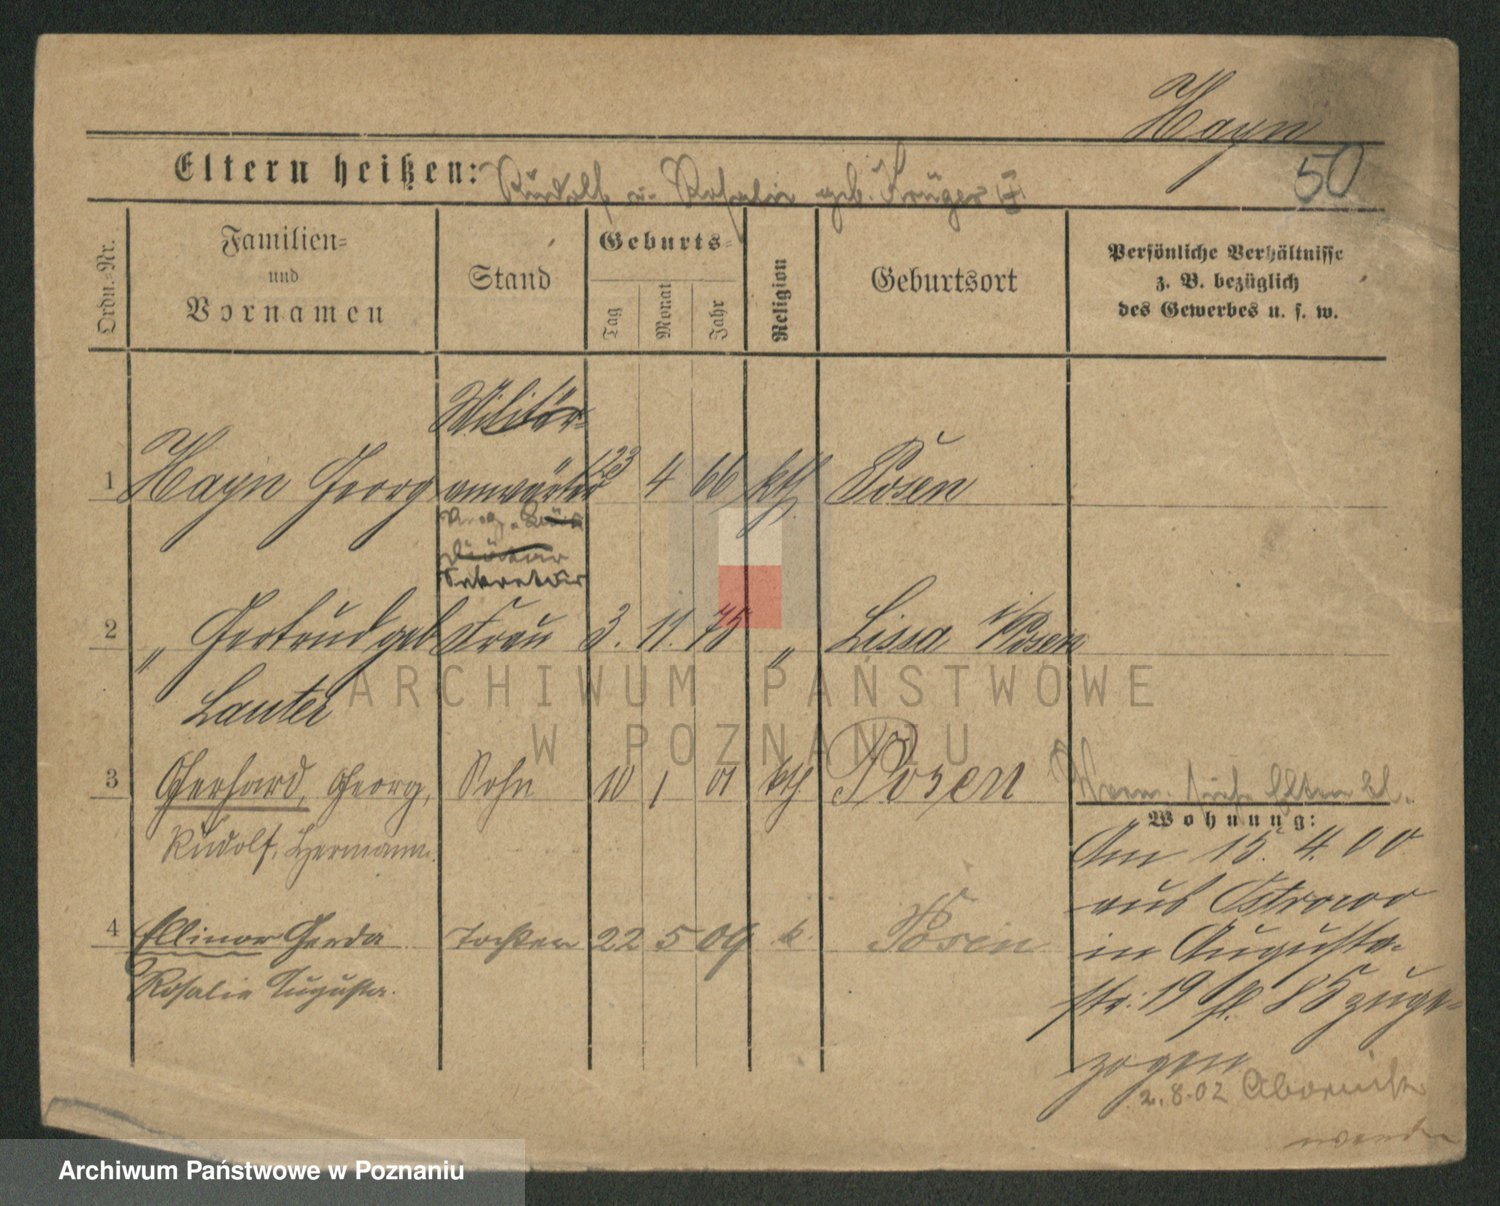 Hayn
50
Eltern heißen: Rudolf u. Rosalie geb. Krüger
Ordn.-Nr.
Familien-
und
Vornamen
Stand
Geburts-
Tag
Monat
Jahr
Religion
Geburtsort
Persönliche Verhältnisse
z. B. bezüglich
des Gewerbes u. s. w.
Militär-
1 Hayn Georg anwärter 23 4 66 kth Posen
Diätar
Sekretär
2 " Gertrud geb Frau 3. 11. 75 " Lissa i/Posen
Lauter
3 Gerhard, Georg, Sohn 10 1 01 kth Posen
Rudolf, Hermann.
Wohnung:
Am 15. 4. 00
aus Ostrowo
4 Ellinor Gerda Tochter 22 5 09 k. Posen
in Augusta-
Rosalie Augusta.
str. 19 pl. 85 zuge-
zogen
2. 8. 02
ARCHIWUM PAŃSTWOWE
W POZNANIU
Archiwum Państwowe w Poznaniu